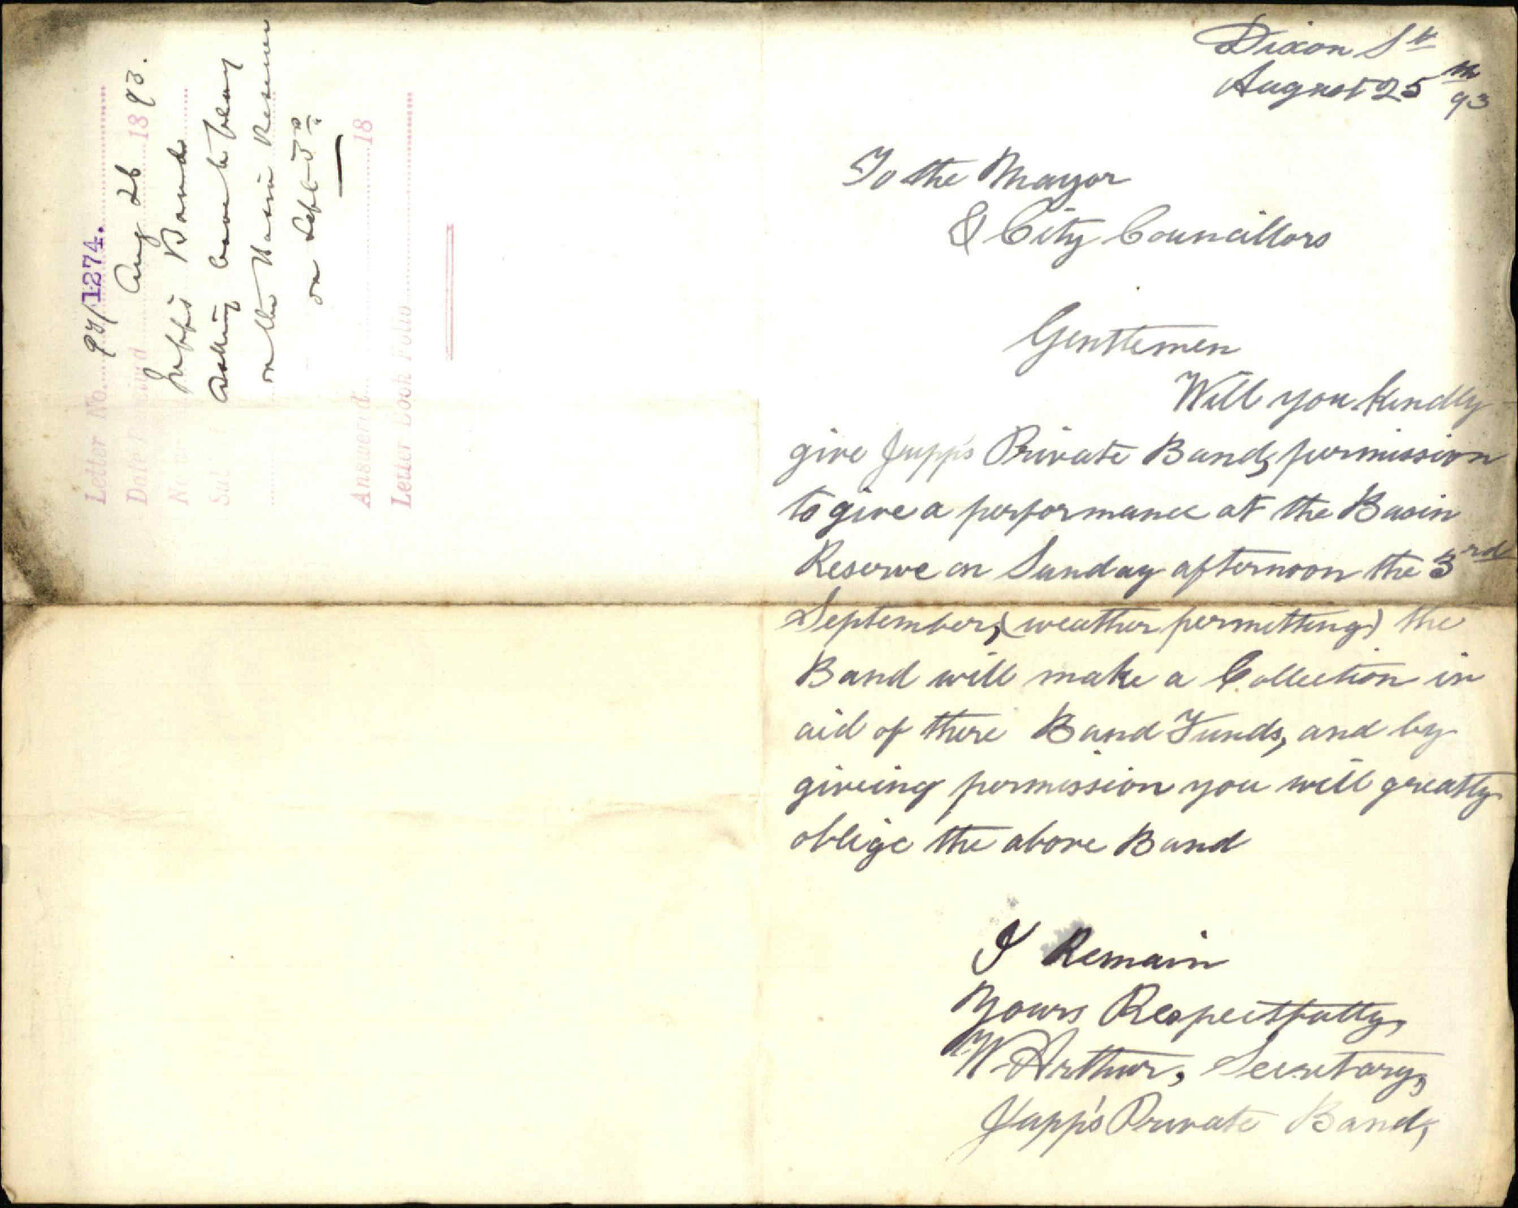 Letter No. 93/1274.
Date Aug 26 1893.
Jupp's Band
Asking leave to play
on the Basin Reserve
on Sept 3rd
Answered 18
Letter Book Folio
Dixon St
August 25th 93
To the Mayor
& City Councillors
Gentlemen
Will you kindly
give Jupp's Private Band, permission
to give a performance at the Basin
Reserve on Sunday afternoon the 3rd
September, (weather permitting) the
Band will make a Collection in
aid of there Band Funds, and by
giveing permission you will greatly
oblige the above Band
I Remain
Yours Respectfully,
W Arthur, Secretary,
Jupp's Private Band,